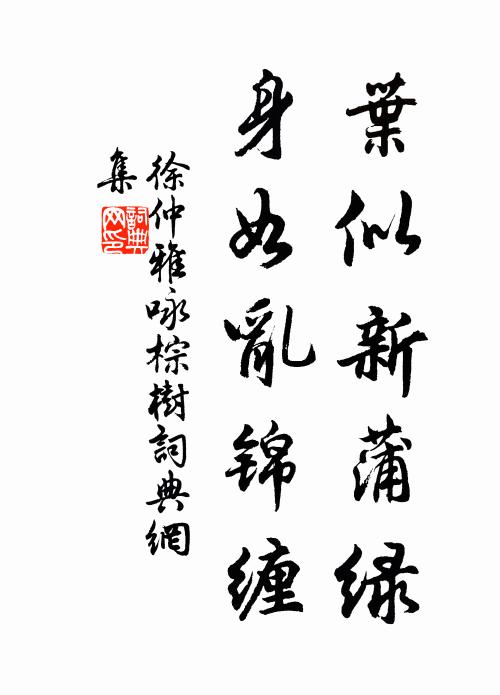 葉似新蒲绿
身如亂錦缠
徐仲雅咏棕樹詞典網
集
詞典網印